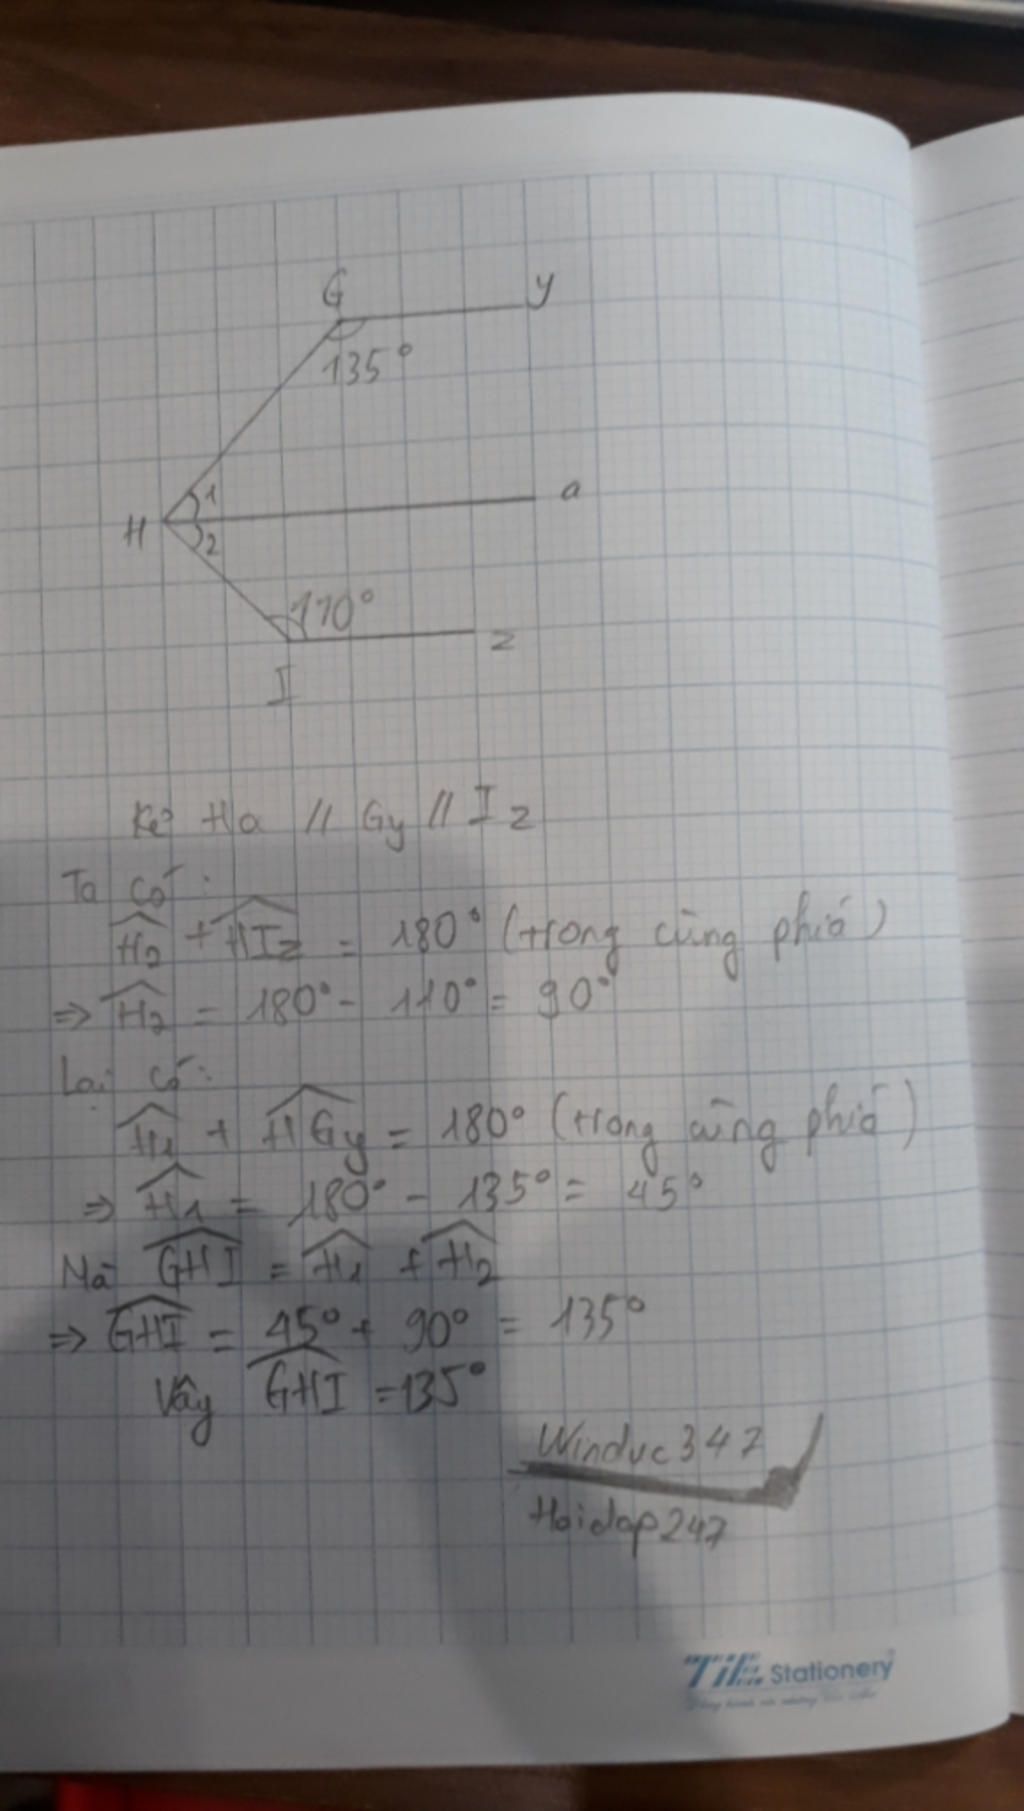 G
y
135°
1
a
H
2
110°
z
I
Kẻ Ha // Gy // Iz
Ta có:
Ĥ₂ + HIz = 180° (trong cùng phía)
⇒ Ĥ₂ = 180° - 110° = 90°
Lại có:
Ĥ₁ + HGy = 180° (trong cùng phía)
⇒ Ĥ₁ = 180° - 135° = 45°
Mà GHI = Ĥ₁ + Ĥ₂
⇒ GHI = 45° + 90° = 135°
Vây GHI = 135°
Winduc347
Hoidap247
TiE Stationery